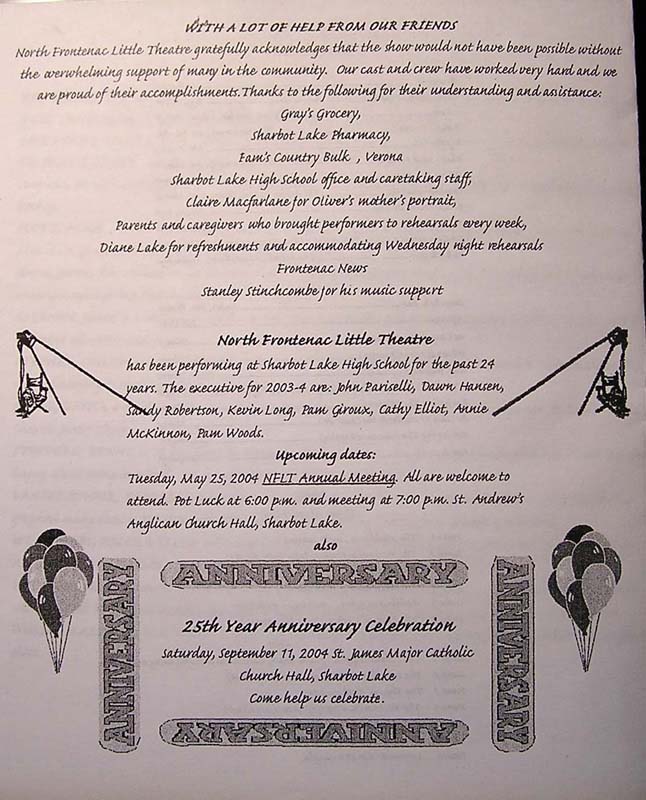 WITH A LOT OF HELP FROM OUR FRIENDS
North Frontenac Little Theatre gratefully acknowledges that the show would not have been possible without
the overwhelming support of many in the community. Our cast and crew have worked very hard and we
are proud of their accomplishments. Thanks to the following for their understanding and assistance:
Gray's Grocery,
Sharbot Lake Pharmacy,
Pam's Country Bulk , Verona
Sharbot Lake High School office and caretaking staff,
Claire Macfarlane for Oliver's mother's portrait,
Parents and caregivers who brought performers to rehearsals every week,
Diane Lake for refreshments and accommodating Wednesday night rehearsals
Frontenac News
Stanley Stinchcombe for his music support
North Frontenac Little Theatre
has been performing at Sharbot Lake High School for the past 24
years. The executive for 2003-4 are: John Pariselli, Dawn Hansen,
Sandy Robertson, Kevin Long, Pam Giroux, Cathy Elliot, Annie
McKinnon, Pam Woods.
Upcoming dates:
Tuesday, May 25, 2004 NFLT Annual Meeting. All are welcome to
attend. Pot Luck at 6:00 p.m. and meeting at 7:00 p.m. St. Andrew's
Anglican Church Hall, Sharbot Lake.
also
ANNIVERSARY
ANNIVERSARY
ANNIVERSARY
25th Year Anniversary Celebration
Saturday, September 11, 2004 St. James Major Catholic
Church Hall, Sharbot Lake
Come help us celebrate.
ANNIVERSARY